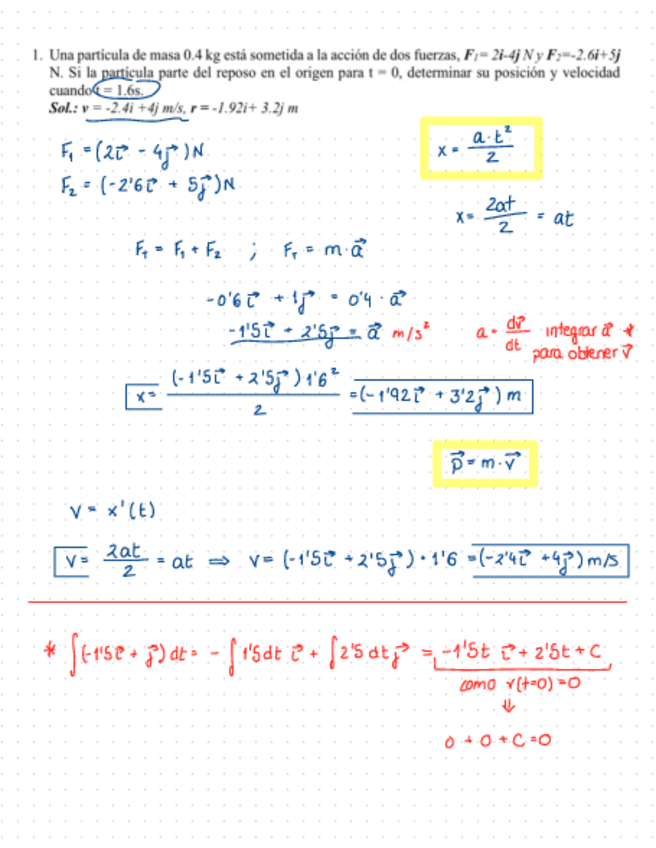 1. Una partícula de masa 0.4 kg está sometida a la acción de dos fuerzas, F₁= 2i-4j N y F₂=-2.6i+5j
N. Si la partícula parte del reposo en el origen para t = 0, determinar su posición y velocidad
cuando t = 1.6s.
Sol.: v = -2.4i +4j m/s, r = -1.92i+ 3.2j m
F₁ = (2i⃗ - 4j⃗)N
F₂ = (-2'6i⃗ + 5j⃗)N
x = a·t²/2
x = 2at/2 = at
F_T = F₁ + F₂ ; F_T = m·a⃗
-0'6i⃗ + 1j⃗ = 0'4·a⃗
-1'5i⃗ + 2'5j⃗ = a⃗ m/s²
a = dv⃗/dt integrar a⃗ *
para obtener v⃗
x = (-1'5i⃗ + 2'5j⃗)1'6²/2 = (-1'92i⃗ + 3'2j⃗) m
p⃗ = m·v⃗
v = x'(t)
v = 2at/2 = at ⇒ v = (-1'5i⃗ + 2'5j⃗)·1'6 = (-2'4i⃗ + 4j⃗) m/s
* ∫(-1'5i⃗ + j⃗) dt = - ∫1'5dt i⃗ + ∫2'5 dt j⃗ = -1'5t i⃗ + 2'5t + C
como v(t=0) = 0
⇓
0 + 0 + C = 0